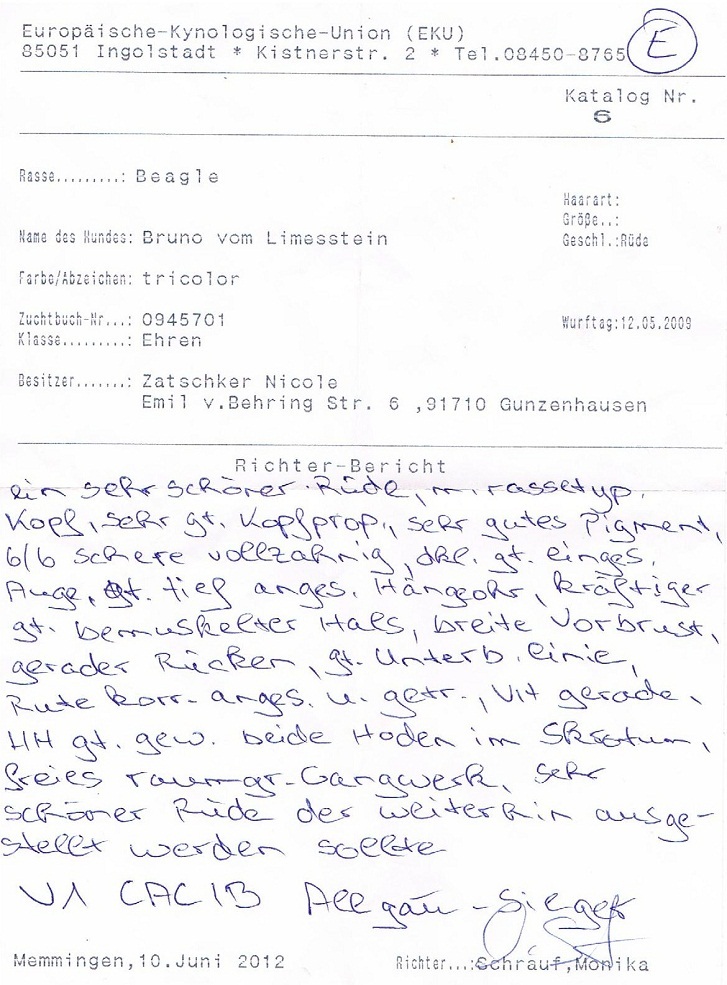 Europäische-Kynologische-Union (EKU)
85051 Ingolstadt * Kistnerstr. 2 * Tel.08450-8765
E
Katalog Nr.
6
Rasse.........: Beagle
Haarart:
Größe..:
Geschl.:Rüde
Name des Hundes: Bruno vom Limesstein
Farbe/Abzeichen: tricolor
Zuchtbuch-Nr...: 0945701
Wurftag:12.05.2009
Klasse.........: Ehren
Besitzer.......: Zatschker Nicole
Emil v.Behring Str. 6 ,91710 Gunzenhausen
Richter-Bericht
ein sehr schöner Rüde, m. rassetyp.
Kopf, sehr gt. Kopfprop., sehr gutes Pigment,
6/6 schere vollzahnig, dkl. gt. einges.
Auge, gt. tief anges. Hängeohr, kräftiger
gt. bemuskelter Hals, breite Vorbrust,
gerader Rücken, gt. Unterb. linie,
Rute korr. anges. u. getr., VH gerade,
HH gt. gew. beide Hoden im Skrotum,
freies raumgr. Gangwerk, sehr
schöner Rüde der weiterhin ausge-
stellt werden sollte
V1 CACIB Allgäu-Sieger
Memmingen,10.Juni 2012
Richter...:Schräuf,Monika